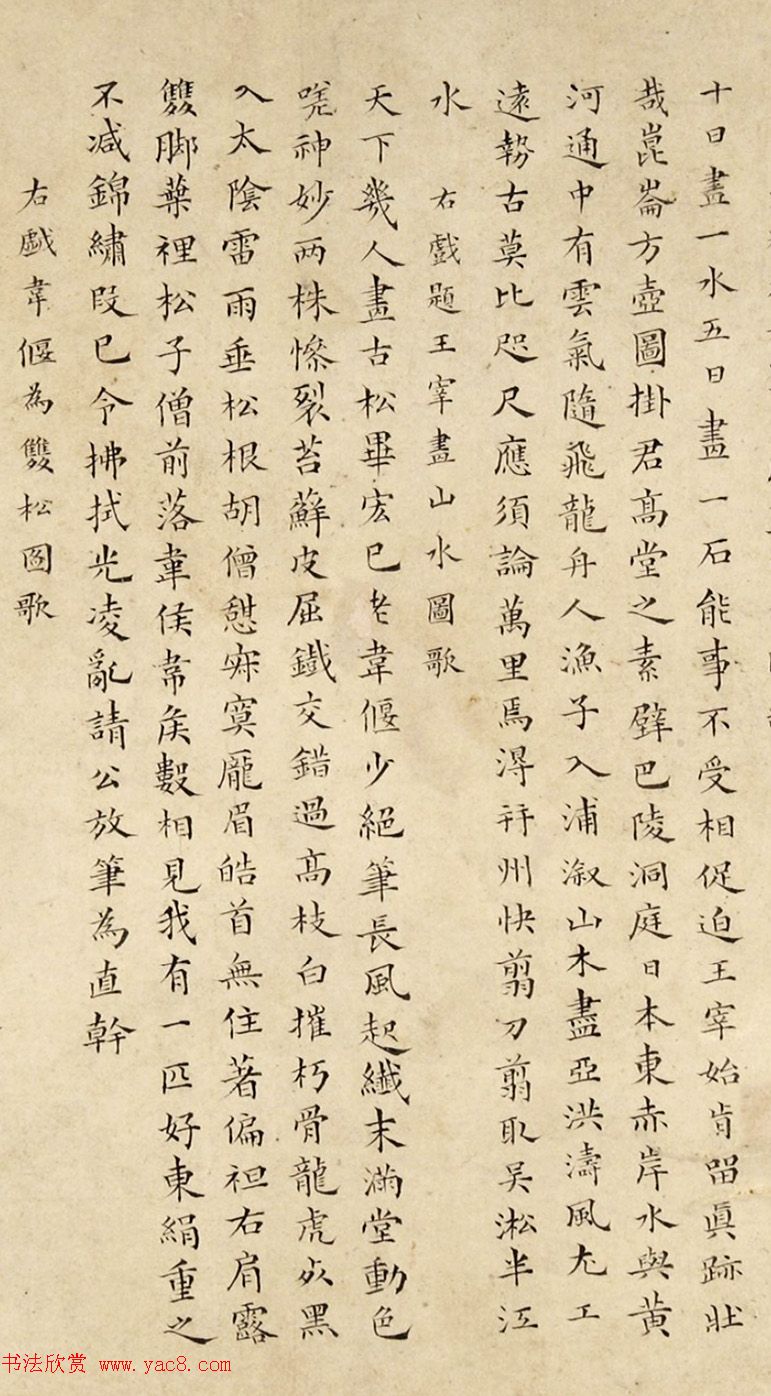 十日畫一水五日畫一石能事不受相促迫王宰始肯留真跡壯
哉崑崙方壺圖掛君高堂之素壁巴陵洞庭日本東赤岸水與黃
河通中有雲氣隨飛龍舟人漁子入浦溆山木盡亞洪濤風尤工
遠勢古莫比咫尺應須論萬里焉淂并州快翦刀翦取吳淞半江
水 右戲題王宰畫山水圖歌
天下幾人畫古松畢宏已老韋偃少絕筆長風起纖末滿堂動色
嗟神妙两株慘裂苔蘚皮屈鐵交錯過高枝白摧朽骨龍虎死黑
入太陰雷雨垂松根胡僧憇寂寞龐眉皓首無住著偏袒右肩露
雙脚葉裡松子僧前落韋侯韋侯數相見我有一匹好東絹重之
不減錦繡段已令拂拭光凌亂請公放筆為直幹
右戲韋偃為雙松圖歌
书法欣赏 www.yac8.com